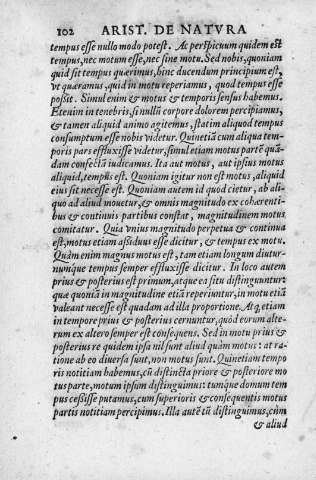 102 ARIST. DE NATVRA
tempus esse nullo modo potest. At perspicuum quidem est
tempus, nec motum esse, nec sine motu. Sed nobis, quoniam
quid sit tempus quærimus, hinc ducendum principium est,
vt quæramus, quid in motu reperiamus, quod tempus esse
possit. Simul enim & motus & temporis sensus habemus.
Etenim in tenebris, si nullũ corpore dolorem percipiamus,
& tamen aliquid animo agitemus, statim aliquod tempus
consumptum esse nobis videtur. Quinetiã cum aliqua tem-
poris pars effluxisse videtur, simul etiam motus parte quã-
dam confectã iudicamus. Ita aut motus, aut ipsius motus
aliquid, tempus est. Quoniam igitur non est motus, aliquid
eius sit necesse est. Quoniam autem id quod cietur, ab ali-
quo ad aliud mouetur, & omnis magnitudo ex cohærenti-
bus & continuis partibus constat, magnitudinem motus
comitatur. Quia vnius magnitudo perpetua & continua
est, motus etiam assiduus esse dicitur, & tempus ex motu.
Quàm enim magnus motus est, tam etiam longum diutur-
numque tempus semper effluxisse dicitur. In loco autem
prius & posterius est primum, atque ea situ distinguuntur:
quæ quoniã in magnitudine etiã reperiuntur, in motu etiã
valeant necesse est quadam ad illa proportione. Atq, etiam
in tempore prius & posterius cernuntur, quòd eorum alte-
rum ex altero semper est consequens. Sed in motu prius &
posterius re quidem ipsa nil sunt aliud quàm motus: at ra-
tione ab eo diuersa sunt, non motus sunt. Quinetiam tempo
ris notitiam habemus, cũ distincta priore & posteriore mo
tus parte, motum ipsum distinguimus: tumque domum tem
pus cessisse putamus, cum superioris & consequentis motus
partis notitiam percipimus. Illa autẽ tũ distinguimus, cùm
& aliud